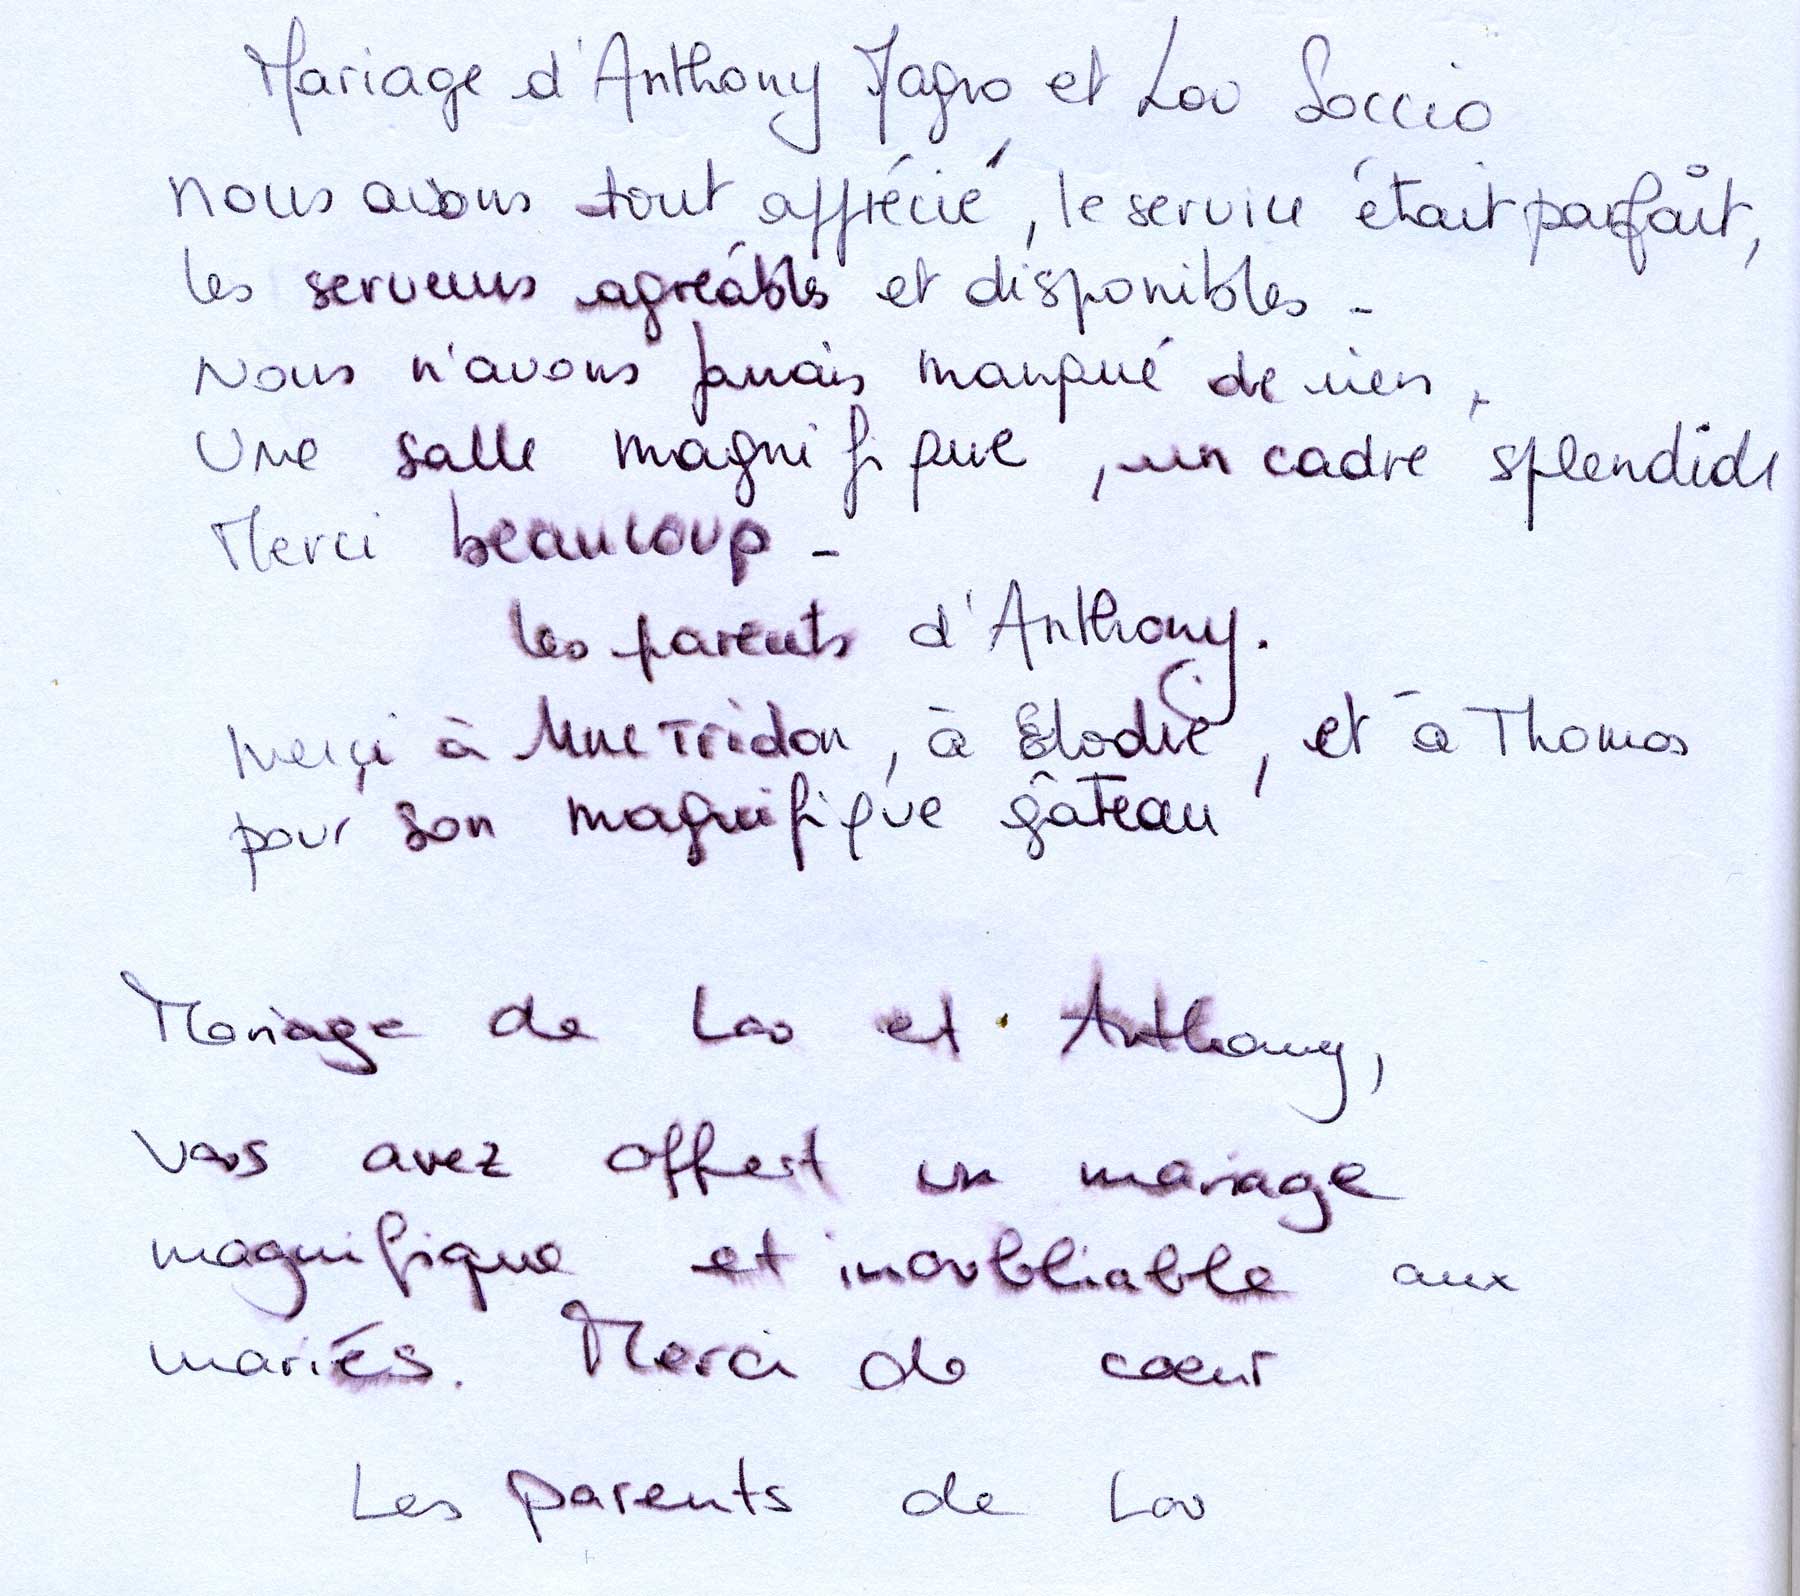 Mariage d'Anthony Magro et Lou Soccio
nous avons tout apprécié, le service était parfait,
les serveurs agréables et disponibles -
Nous n'avons jamais manqué de rien.
Une salle magnifique, un cadre splendide
Merci beaucoup -
les parents d'Anthony.
merci à Mme Tridon, à Elodie, et à Thomas
pour son magnifique gâteau
Mariage de Lou et Anthony,
Vous avez offert un mariage
magnifique et inoubliable aux
mariés. Merci de coeur
Les parents de Lou